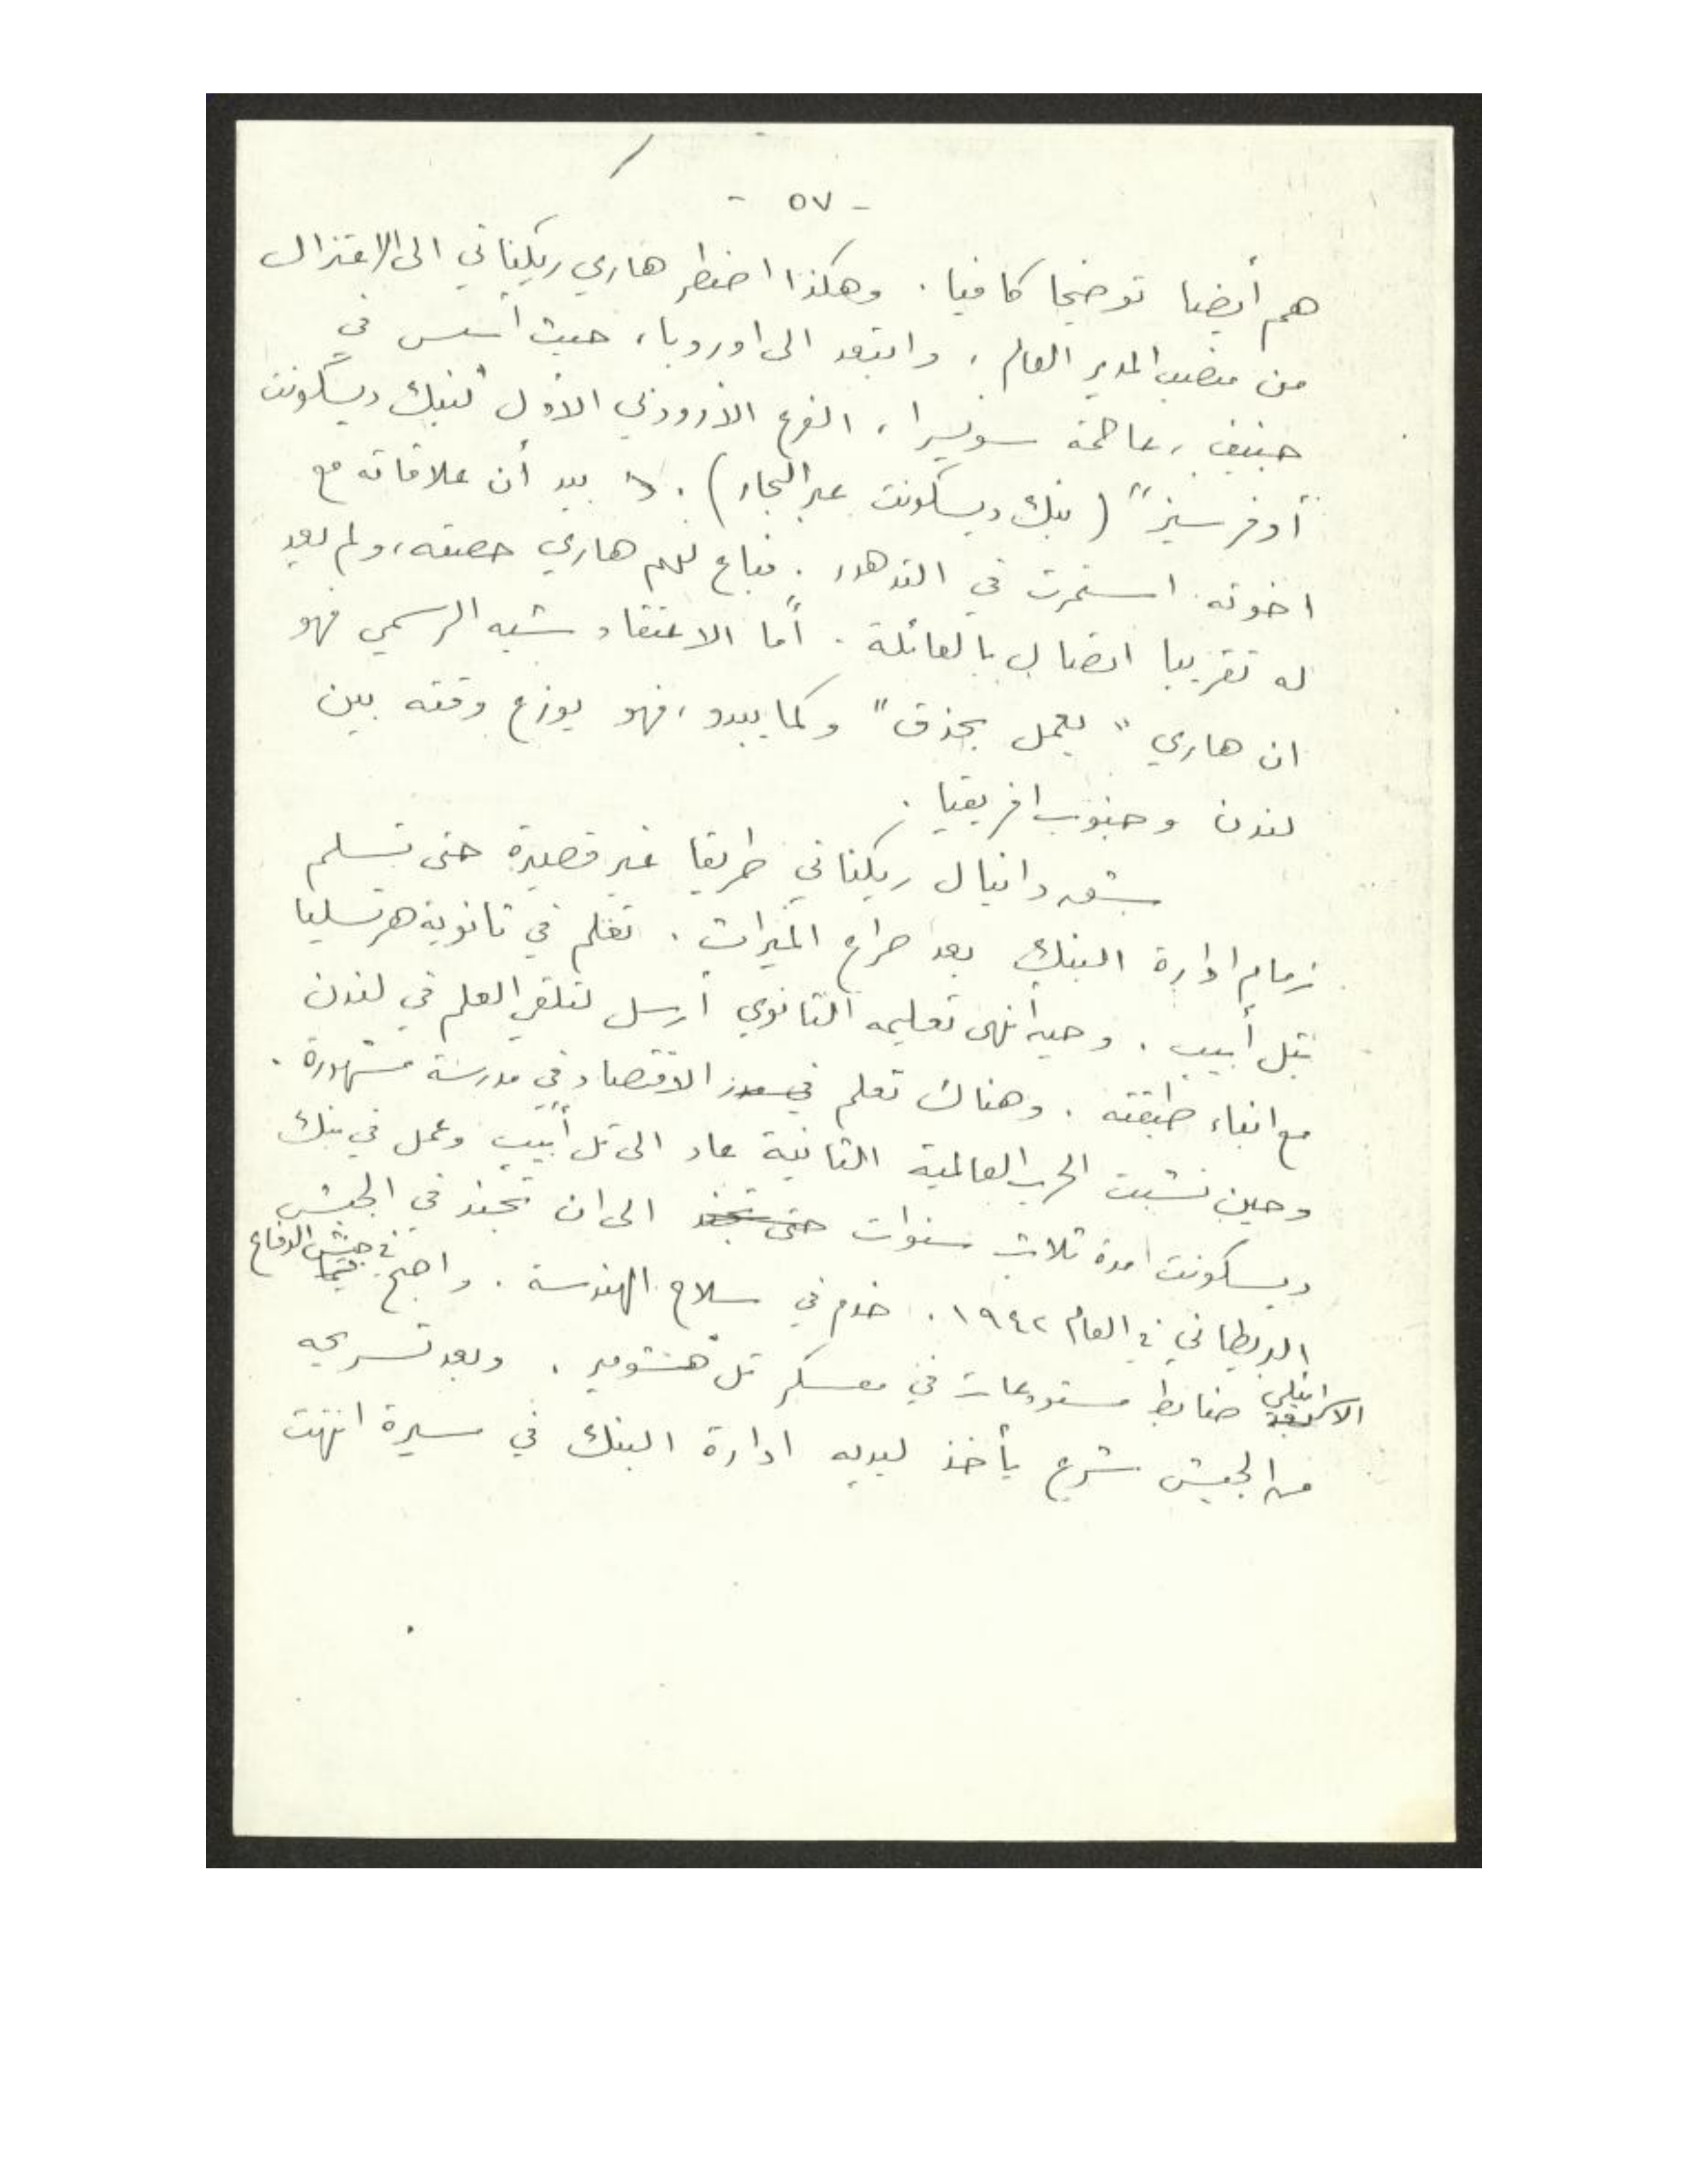 - ٥٧ -
هم أيضا توضيحا كافيا . وهكذا اضطر هاري ريكناتي الى الاعتزال
من منصب المدير العام ، وابتعد الى اوروبا ، حيث أسس في
جنيف ، عاصمة سويسرا ، الفرع الأوروبي الأول لبنك ديسكونت
أوفرسيز" ( بنك ديسكونت عبر البحار ) . بيد أن علاقاته مع
اخوته استمرت في التدهور . فباع لهم هاري حصته ، ولم يعد
له تقريبا اتصال بالعائلة . أما الاعتقاد شبه الرسمي فهو
ان هاري " يعمل بحذق " وكما يبدو ، فهو يوزع وقته بين
لندن وجنوب افريقيا .
شق دانيال ريكناتي طريقا غير قصيرة حتى تسلم
زمام ادارة البنك بعد صراع الميراث . تعلم في ثانوية هرتسليا
بتل أبيب . وحين أنهى تعليمه الثانوي أرسل لتلقي العلم في لندن
مع ابناء طبقته . وهناك تعلم الاقتصاد في مدرسة مشهورة .
وحين نشبت الحرب العالمية الثانية عاد الى تل أبيب وعمل في بنك
ديسكونت لمدة ثلاث سنوات حتى تجند الى ان تجند في الجيش
البريطاني في العام ١٩٤٢ . خدم في سلاح الهندسة . واصبح في جيش الدفاع
الاسرائيلي ضابط مستودعات في معسكر تل هشومير . وبعد تسريحه
من الجيش شرع يأخذ ليديه ادارة البنك في سيرة انتهت